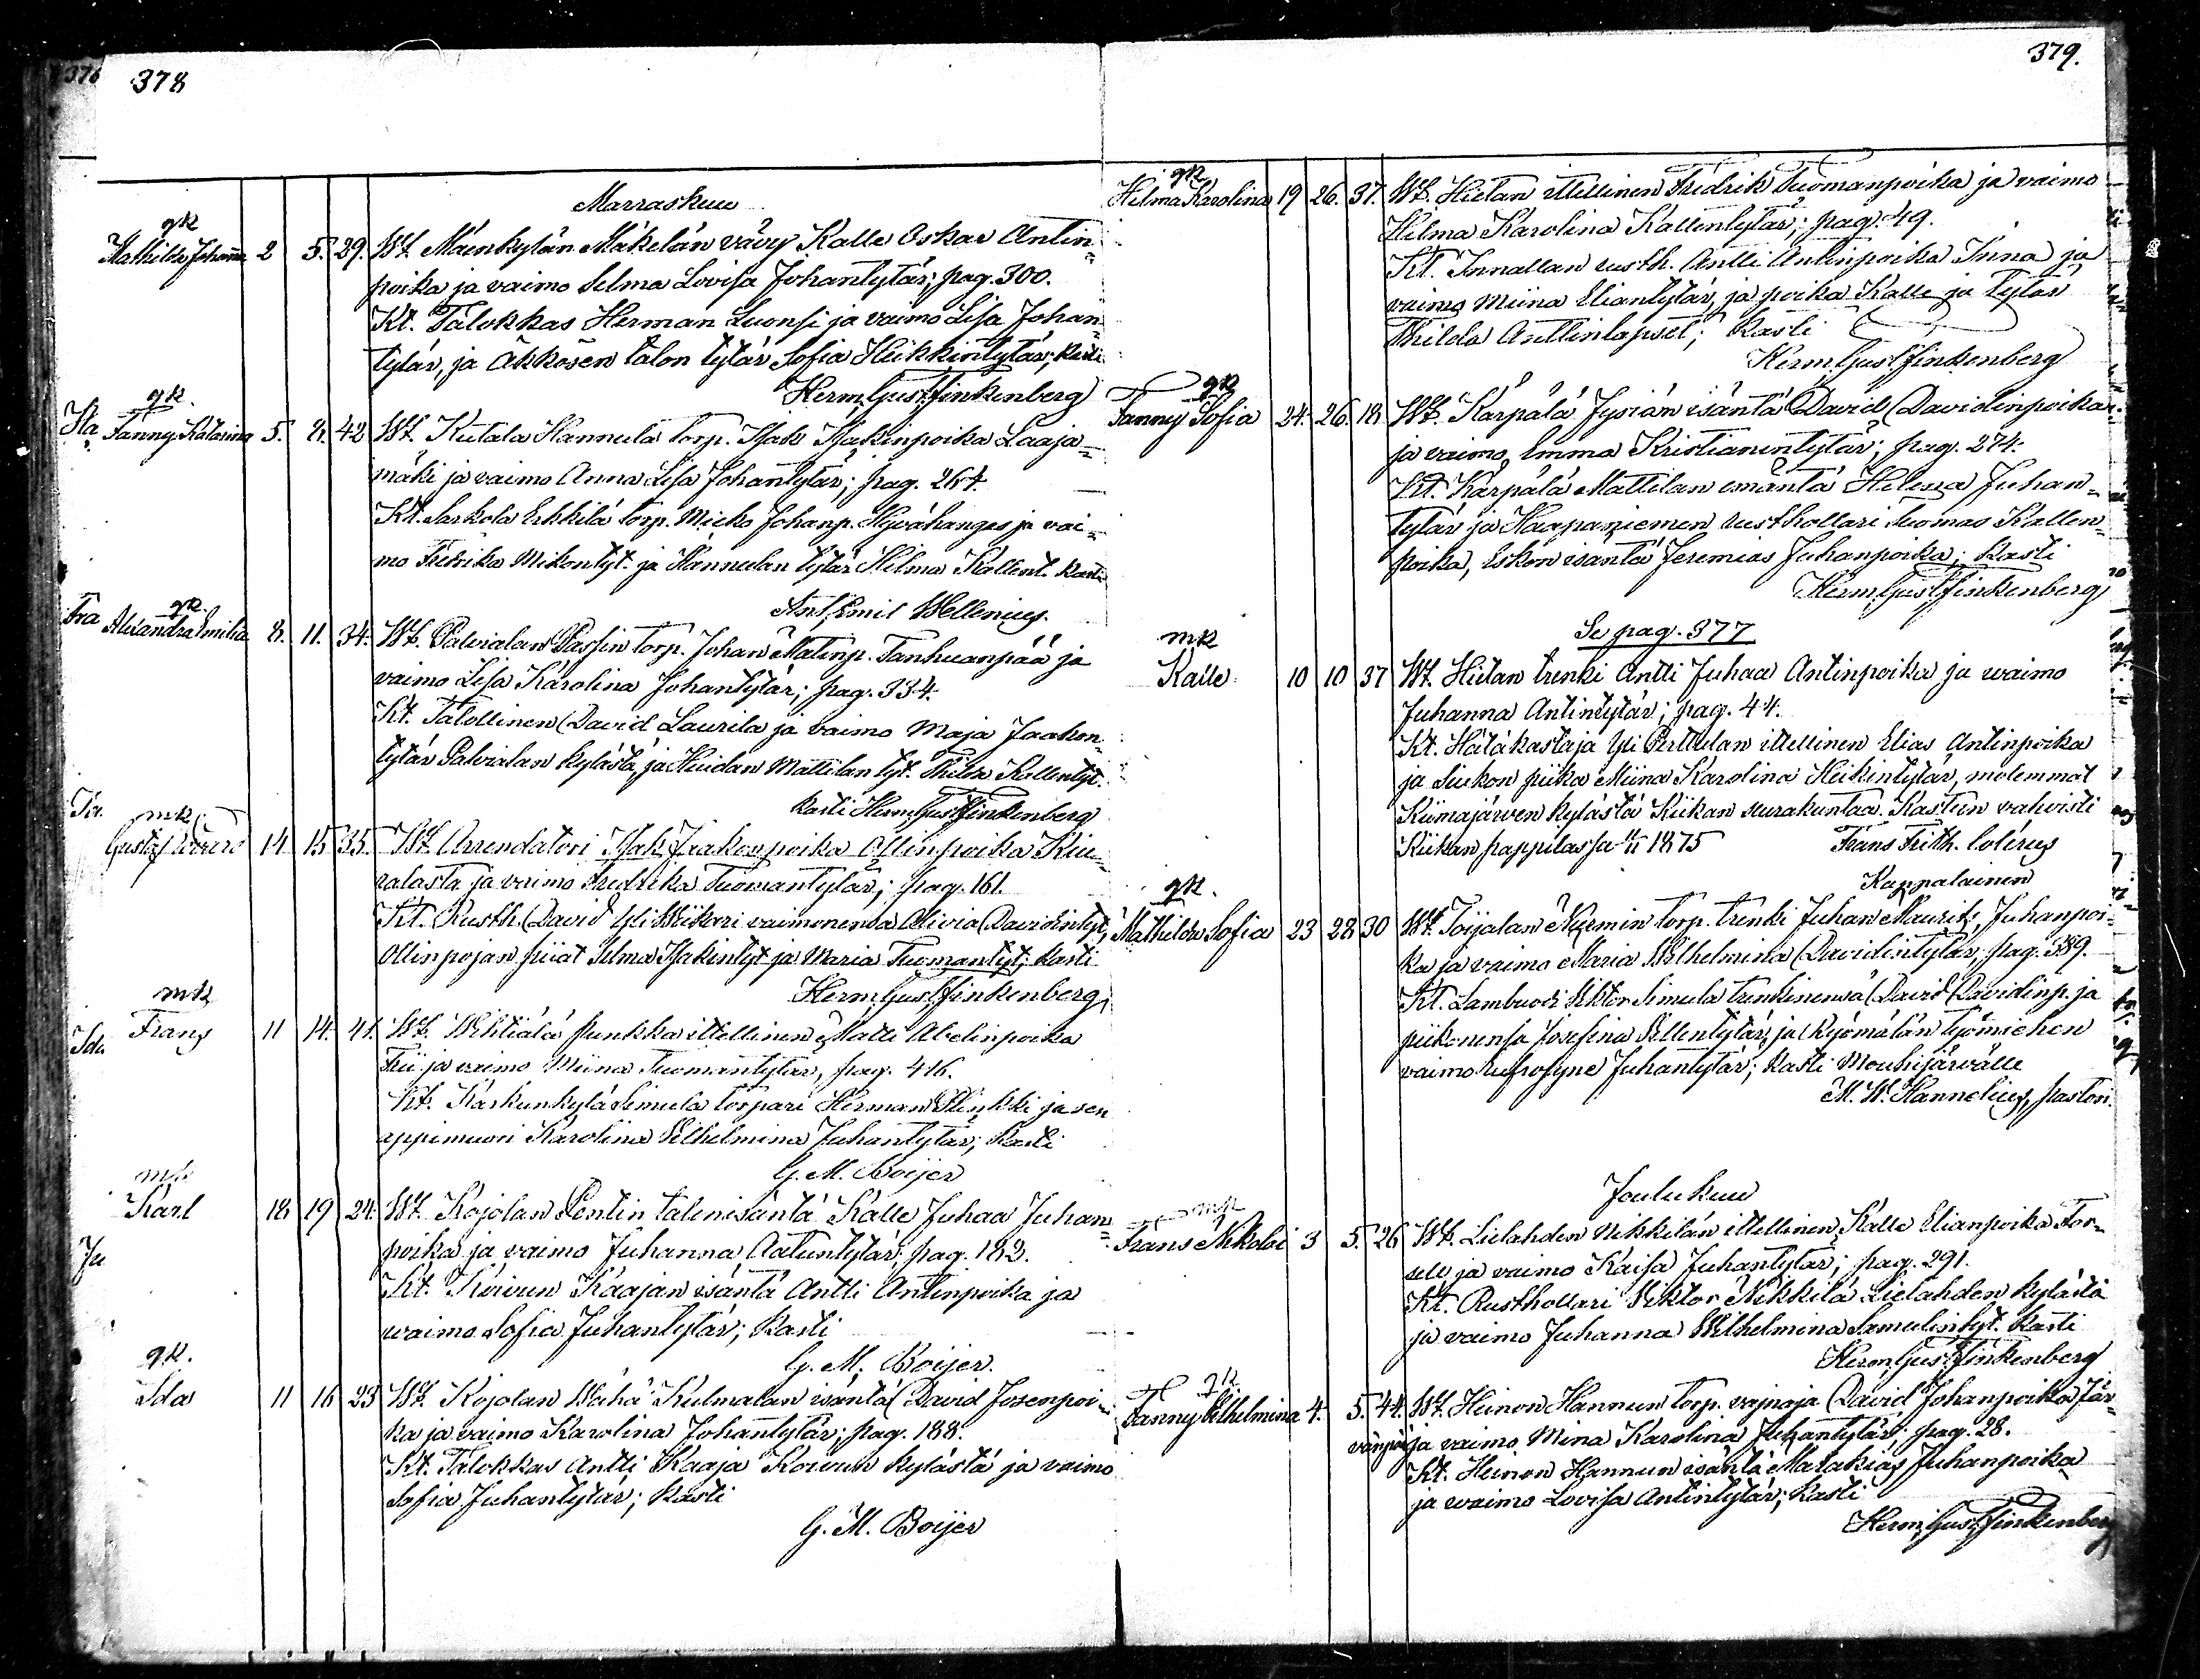 378
Marraskuu
gk
Mathilda Johanna 2 5. 29. Wt. Mäenkylän Mäkelän vävy Kalle Oskar Antin=
poika ja vaimo Selma Lovisa Johantytär; pag. 300.
Kt. Talokkas Herman Luonsi ja vaimo Lisa Johan=
tytär, ja Äkkösen talon tytär Sofia Heikkintytär; Kasti
Herm. Gust. Finkenberg
gk.
Fanny Katarina 5. 8. 42 Wt. Kutala Hannula torp. Isak Isakinpoika Laaja=
mäki ja vaimo Anna Lisa Johantytär; pag. 264.
Kt. Sarkola Erkkilä torp. Micko Johanp. Hyvähangas ja vai=
mo Fredrika Mikontyt. ja Hannulan tytär Hilma Kallent. Kasti
Ant. Emil Wellenius.
gk.
Alexandra Emilia 8. 11. 34. Wt. Palvialan Passin torp. Johan Matinp. Tanhuanpää ja
vaimo Lisa Karolina Johantytär; pag. 334.
Kt. Talollinen David Laurila ja vaimo Maja Jaakon=
tytär Palvialan kylästä, ja Huidan Mattilan tyt. Thilda Kallentyt.
Kasti Herm. Gust. Finkenberg
mk.
Gustaf 14 15 35. Wt. Arrendatori Isak Jaakonpoika Ollinpoika Kiu=
ralasta ja vaimo Fredrika Tuomantytär; pag. 161.
Kt. Rusth. David Yli Wiikari vaimonensa Olivia Davidintyt,
Ollinpojan piiat Selma Isakintyt ja Maria Tuomantyt; Kasti
Herm. Gust. Finkenberg.
mk
Frans 11 14. 41. Wt. Wihtiälä Junkka ittellinen Matti Abelinpoika
Frii ja vaimo Miina Tuomantytär, pag. 416.
Kt. Karkunkylä Simula torpari Herman Klinkki ja sen
appimuori Karolina Wilhelmina Juhantytär; Kasti
G. M. Boijer
mk
Karl 18 19 24. Wt. Kojolan Pentin talonisäntä Kalle Juhaa Juhan=
poika ja vaimo Juhanna Aatuntytär; pag. 182.
Kt. Koivun Kaajan isäntä Antti Antinpoika ja
waimo Sofia Juhantytär; Kasti
G. M. Boijer.
gk.
Ida 11 16 23 Wt. Kojolan Wähä Kulmalan isäntä David Josenpoi=
ka ja vaimo Karolina Johantytär; pag. 188.
Kt. Talokkas Antti Kaaja Koivun kylästä ja vaimo
Sofia Juhantytär; Kasti
G. M. Boijer
379.
gk
Hilma Karolina 19 26. 37. Wt. Hietan ittellinen Fredrik Tuomanpoika ja vaimo
Hilma Karolina Kallentytär; pag. 49.
Kt. Innallan rusth. Antti Antinpoika Inna ja
vaimo Miina Eliantytär, ja poika Kalle ja tytär
Thilda Antinlapset; Kasti
Herm. Gust. Finkenberg
gk
Fanny Sofia 24. 26. 18. Wt. Karpälä Jysiän isäntä David Davidinpoika
ja vaimo Emma Kristianintytär; pag. 274.
Kt. Karpälä Mattilan emäntä Helena Juhan=
tytär ja Haapaniemen rusthollari Tuomas Kallen=
poika, Eskon isäntä Jeremias Juhanpoika; Kasti
Herm. Gust. Finkenberg
Se pag. 377
mk
Kalle 10 10 37 Wt. Hietan trenki Antti Juhaa Antinpoika ja waimo
Juhanna Antintytär; pag. 44.
Kt. Hätäkastaja Yli Perttulan ittellinen Elias Antinpoika
ja Liukon piika Miina Karolina Heikintytär, molemmat
Kiimajärven kylästä Kiikan seurakuntaa. Kasteen vahvisti
Kiikan pappilassa 11/11 1875 Frans Frith. Colérus
Kappalainen
gk.
Mathilda Sofia 23 28 30 Wt. Toijalan Niemin torp. trenki Juhan Maurits Juhanpoi=
ka ja vaimo Maria Wilhelmina Davidintytär; pag. 389.
Kt. Lambuodi Viktor Simula trenkinensä David Davidinp. ja
piikonensa Josefina Villentytär, ja Kyömälän työmiehen
vaimo Eufrosyne Juhantytär; Kasti Mouhijärvälle
M. W. Hannelius, pastori.
Joulukuu
mk
Frans Nikolai 3 5. 26 Wt. Lielahden Nikkilän ittellinen Kalle Elianpoika For=
sell ja vaimo Kaisa Juhantytär; pag. 291.
Kt. Rusthollari Viktor Nikkilä Lielahden kylästä
ja vaimo Juhanna Wilhelmina Samulintyt. Kasti
Herm. Gust. Finkenberg
gk
Fanny Wilhelmina 4. 5. 44. Wt. Heinon Hannun torp. vajnaja David Johanpoika Jär=
vänpää ja vaimo Mina Karolina Juhantytär; pag. 28.
Kt. Heinon Hannun isäntä Malakias Juhanpoika
ja waimo Lovisa Antintytär; Kasti
Herm. Gust. Finkenberg